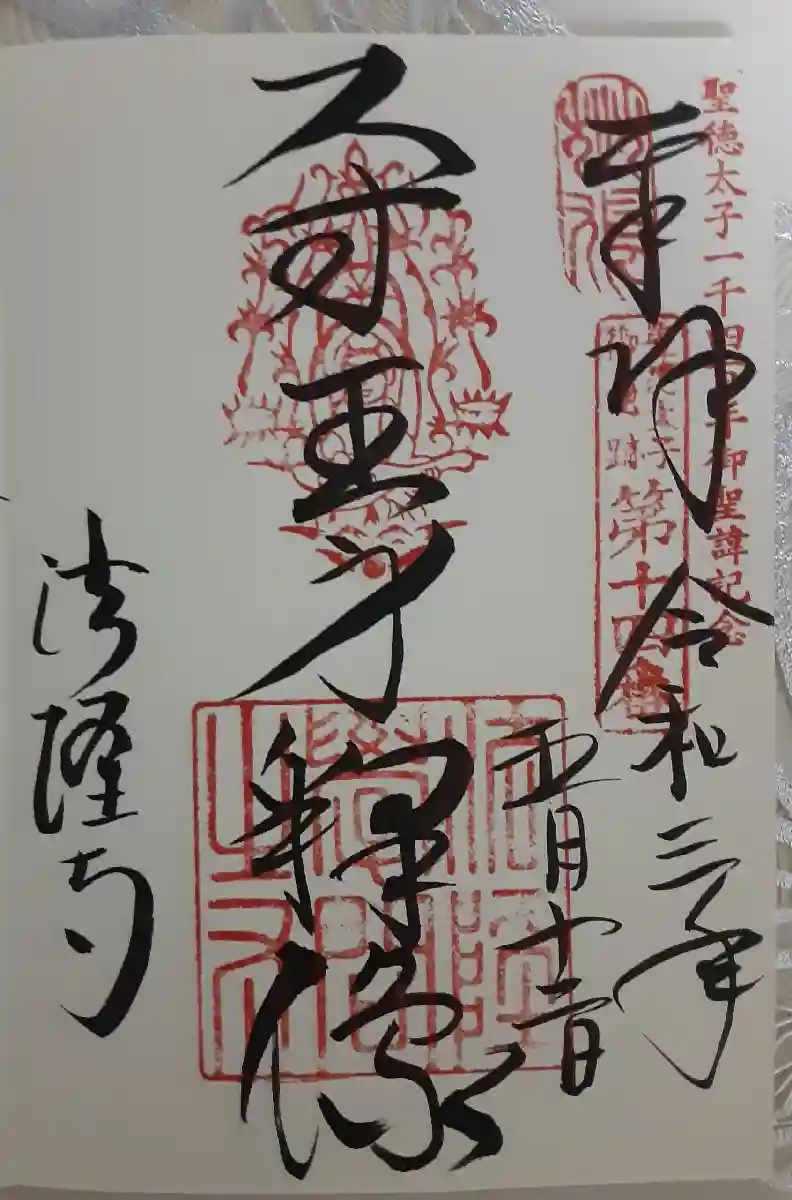 聖徳太子一千四百年御聖諱記念
聖徳太子
御遺跡
第十四番
奉拝 令和三年
五月十二日
尺寸王身釋像
法隆寺